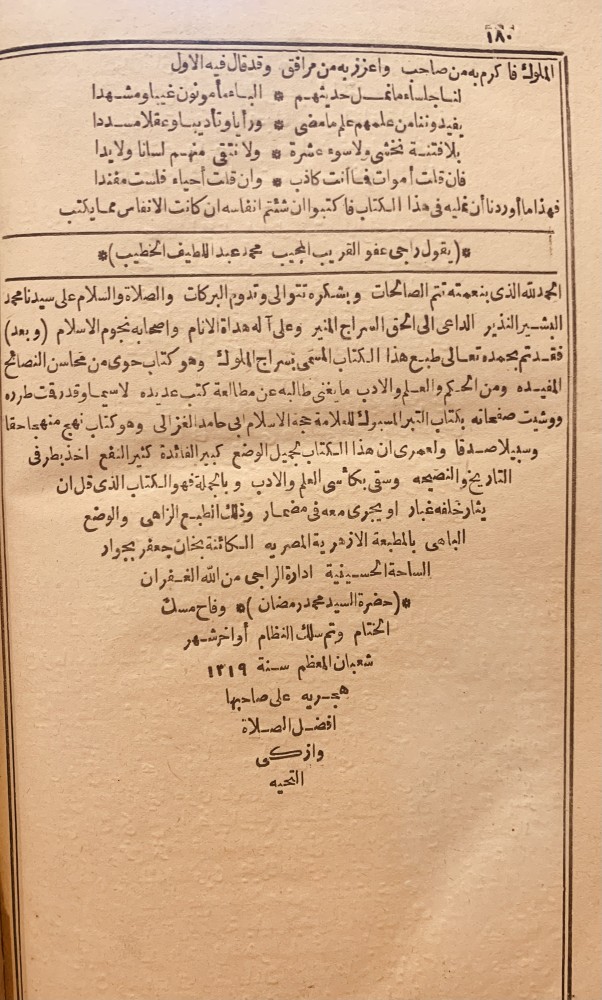 ١٨٠
الملوك فاكرم به من صاحب واعزز به من مرافق وقد قال فيه الاول
لنا جلساء ما نمل حديثهم * ألباء مأمونون غيبا ومشهدا
يفيدوننا من علمهم علم ما مضى * ورأيا وتأديبا وعقلا مسددا
بلا فتنة نخشى ولا سوء عشرة * ولا نتقى منهم لسانا ولا يدا
فان قلت أموات فما أنت كاذب * وان قلت أحياء فلست مفندا
فهذا ما أوردنا أن نمليه فى هذا الكتاب فاكتبوا ان شئتم انفاسه ان كانت الانفاس مما يكتب
*(يقول راجى عفو القريب المجيب محمد عبد اللطيف الخطيب)*
الحمد لله الذى بنعمته تتم الصالحات وبشكره تتوالى وتدوم البركات والصلاة والسلام على سيدنا محمد
البشير النذير الداعى الى الحق السراج المنير وعلى آله هداة الانام واصحابه نجوم الاسلام (وبعد)
فقد تم بحمده تعالى طبع هذا الكتاب المسمى بسراج الملوك وهو كتاب حوى من محاسن النصائح
المفيده ومن الحكم والعلم والادب ما يغنى طالبه عن مطالعة كتب عديده لاسيما وقد رقت طرره
ووشيت صفحاته بكتاب التبر المسبوك للعلامة حجة الاسلام ابى حامد الغزالى وهو كتاب نهج منهجا حقا
وسبيلا صدقا ولعمرى ان هذا الكتاب لجميل الوضع كبير الفائدة كثير النفع اخذ بطرفى
التاريخ والنصيحه وسقى بكأسى العلم والادب وبالجملة فهو الكتاب الذى قل ان
يثار خلفه غبار او يجرى معه فى مضمار وذلك الطبع الزاهى والوضع
الباهى بالمطبعة الازهرية المصريه الكائنة بخان جعفر بجوار
الساحة الحسينية ادارة الراجى من الله الغفران
*(حضرة السيد محمد رمضان)* وفاح مسك
الختام وتم سلك النظام أواخر شهر
شعبان المعظم سنة ١٣١٩
هجريه على صاحبها
افضل الصلاة
وازكى
التحيه